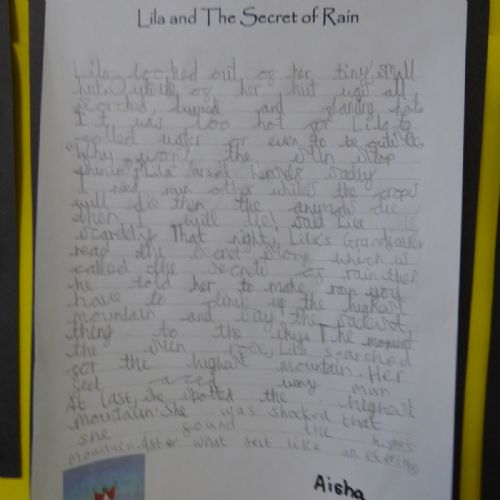 Lila and The Secret of Rain
Lila looked out of her tiny, small
hut. Outside of her hut was all
scorched, burned and glaring hot.
It was too hot for Lila to
collect water or even to be outside.
"Why won't the sun stop
shining," Lila herself sadly
I need rain other wise the crops
will die then the anymals die
then will die! said Lila
scaredly. That night, Lila's Grandfather
read the secret story which is
called the secret of rain then
he told her to make rain you
have to climb up the highest
mountain and say the saddest
thing to the sky. The moment
the sun rose, Lila searched
for the highest mountain. Her
feet very much
At last, she spotted the highest
mountain. She was shocked that
she found the
mountain. After what felt like an
Aisha